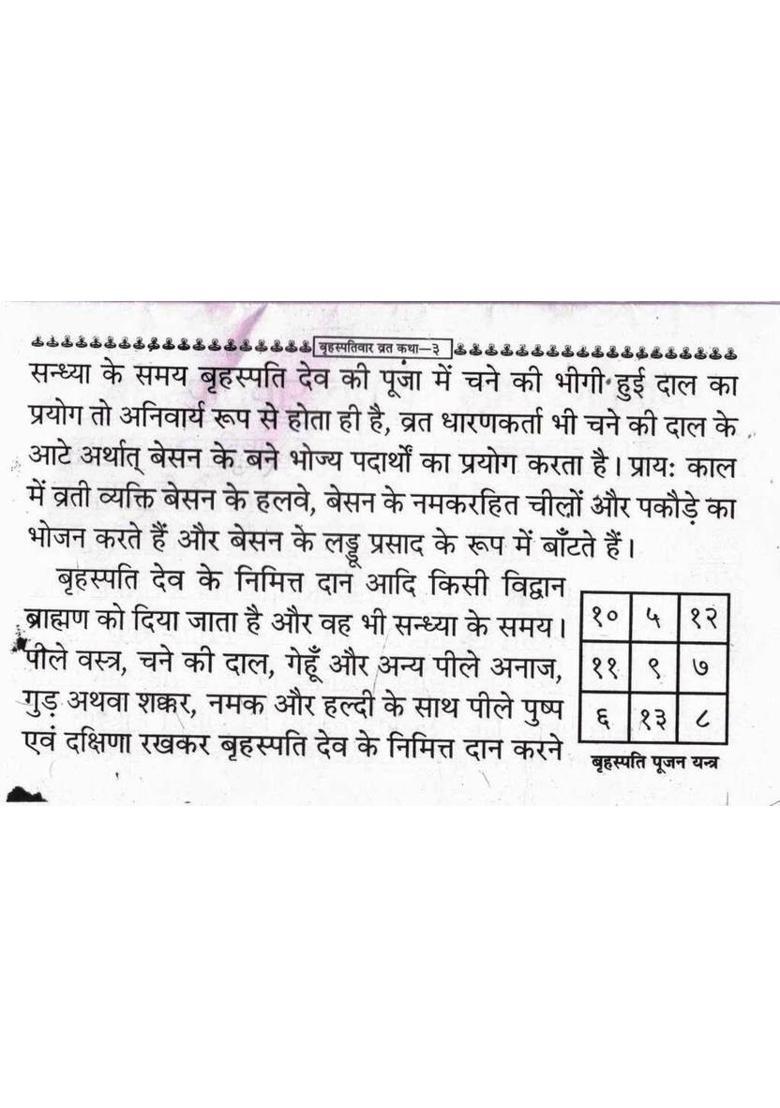 बृहस्पतिवार व्रत कथा—३
सन्ध्या के समय बृहस्पति देव की पूजा में चने की भीगी हुई दाल का
प्रयोग तो अनिवार्य रूप से होता ही है, व्रत धारणकर्ता भी चने की दाल के
आटे अर्थात् बेसन के बने भोज्य पदार्थों का प्रयोग करता है। प्रायः काल
में व्रती व्यक्ति बेसन के हलवे, बेसन के नमकरहित चीलों और पकौड़े का
भोजन करते हैं और बेसन के लड्डू प्रसाद के रूप में बाँटते हैं।
बृहस्पति देव के निमित्त दान आदि किसी विद्वान
ब्राह्मण को दिया जाता है और वह भी सन्ध्या के समय।
पीले वस्त्र, चने की दाल, गेहूँ और अन्य पीले अनाज,
गुड़ अथवा शक्कर, नमक और हल्दी के साथ पीले पुष्प
एवं दक्षिणा रखकर बृहस्पति देव के निमित्त दान करने
१० ५ १२
११ ९ ७
६ १३ ८
बृहस्पति पूजन यन्त्र